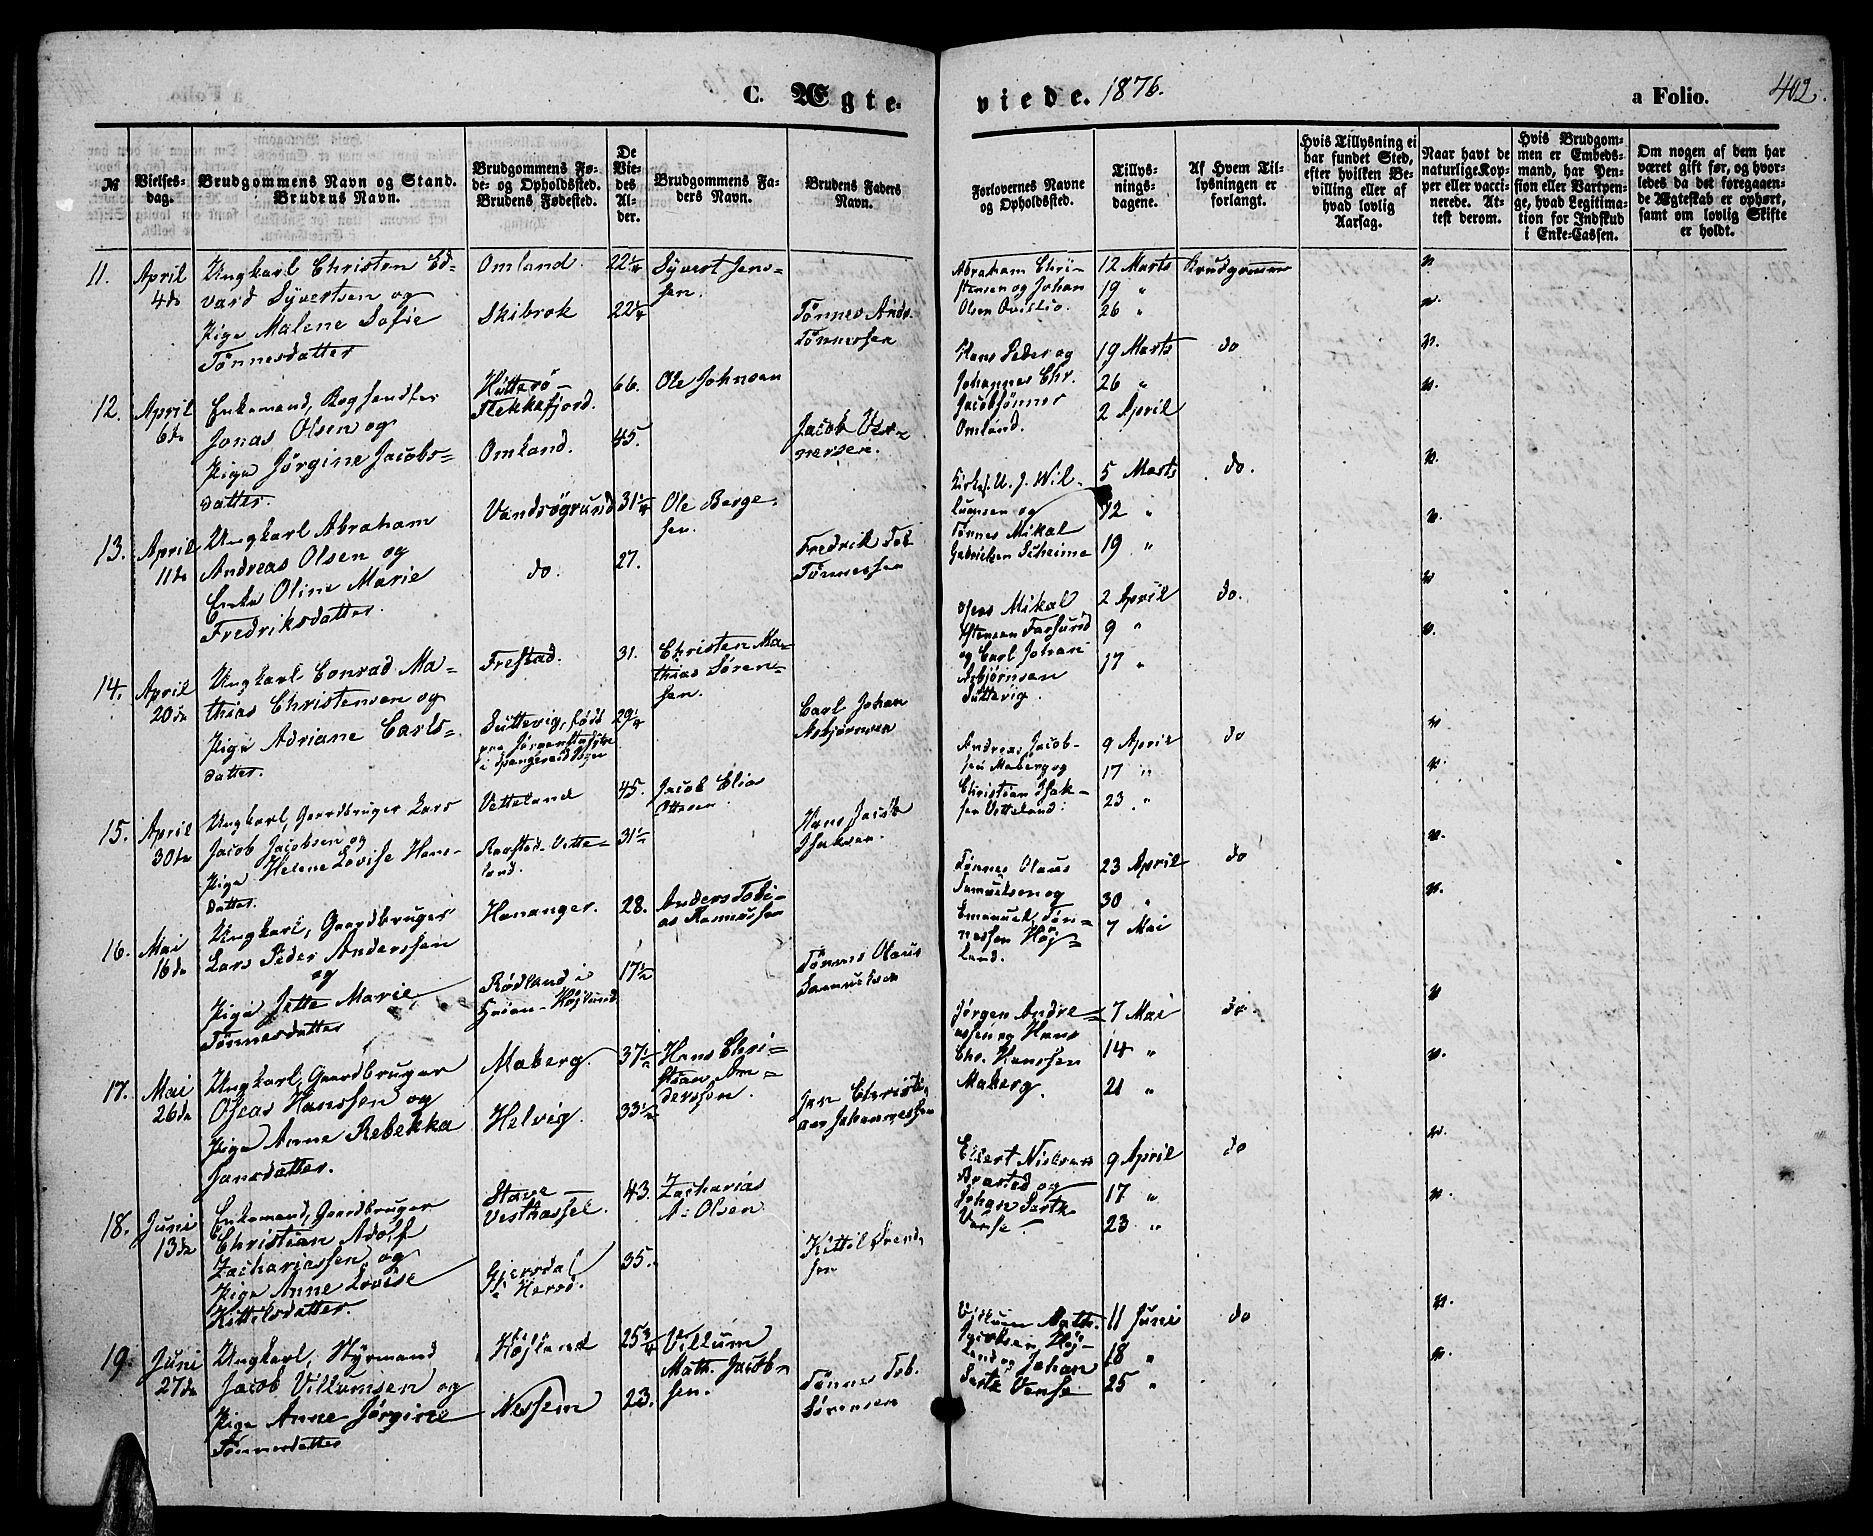 C. Ægte-
viede. 1876.
a Folio. 402.
№
Vielses-
dag.
Brudgommens Navn og Stand.
Brudens Navn.
Brudgommens Fø-
de- og Opholdssted.
Brudens Fødested.
De
Vie-
des
Al-
der.
Brudgommens Fa-
ders Navn.
Brudens Faders
Navn.
Forlovernes Navne
og Opholdssted.
Tillys-
nings-
dagene.
Af Hvem Til-
lysningen er
forlangt.
Hvis Tillysning ei
har fundet Sted,
efter hvilken Be-
villing eller af
hvad lovlig
Aarsag.
Naar havt de
naturlige Kop-
per eller vacci-
nerede. At-
test derom.
Hvis Brudgom-
men er Embeds-
mand, har Pen-
sion eller Vartpen-
ge, hvad Legitima-
tion for Indskud
i Enke-Cassen.
Om nogen af dem har
været gift før, og hvor-
ledes da det foregaaen-
de Ægteskab er ophørt,
samt om lovlig Skifte
er holdt.
11.
April
4de
Ungkarl Christen Ed-
vard Syvertsen og
Pige Malene Sofie
Tønnesdatter
Omland.
Skibrok
22 1/4
22 1/4
Syvert Jens-
sen.
Tønnes Andr.
Tønnessen
Abraham Chri-
stensen og Johan
Olsen Qvislio.
12 Marts
19 "
26 "
Brudgommen
v.
v.
12.
April
6te
Enkemand, Bogsendter
Jonas Olsen og
Pige Jørgine Jacobs-
datter.
Hitterø-
Flekkefjord.
Omland.
66.
45.
Ole Johnsen
Jacob Ver-
nersen.
Hans Peder og
Johannes Chr.
Jacobsønner
Omland.
19 Marts
26 "
2 April
do
v.
v.
13.
April
11te
Ungkarl Abraham
Andreas Olsen og
Enke Oline Marie
Fredriksdatter.
Vandsøgrund
do.
31 1/4
27.
Ole Berge-
sen.
Fredrik Tob
Tønnessen
Kirkes. U. J. Wil-
lumsen og
Tønnes Mikal
Gabrielsen Seheime
5 Marts
12 "
19 "
do.
v.
v.
14.
April
20de
Ungkarl Conrad Ma-
thias Christensen og
Pige Adriane Carls-
datter.
Frestad.
Suttevig, født
i Spangereid Sogn
31.
29 1/4
Christen Ma-
thias Søren-
sen.
Carl Johan
Asbjørnsen
Mikal
Farsund
og Carl Johan
Asbjørnsen
Suttevig.
2 April
9 "
17 "
do.
v
v.
15.
April
30te
Ungkarl, Gaardbruger Lars
Jacob Jacobsen og
Pige Helene Lovise Hans-
datter.
Vetteland
Raastad-Vette-
land.
45.
31 1/2
Jacob Elias
Ottesen.
Hans Jacob
Isaksen.
Andreas Jacob-
sen Maberg og
Christian Isak-
sen Vetteland.
9 April
17 "
23 "
do
v
v.
16.
Mai
16de
Ungkarl, Gaardbruger
Lars Peder Anderssen
og
Pige Jette Marie
Tønnesdatter
Hananger.
Rødland i
28.
17 1/2
Anders Tobi-
as Rasmussen
Tønnes Olaus
Samuelsen
Tønnes Olaus
Samuelsen og
Emanuel Tøn-
nessen Høj-
land.
23 April
30 "
7 Mai
do
v.
v.
17.
Mai
26de
Ungkarl, Gaardbruger
Oseas Hanssen og
Pige Anne Rebekka
Jansdatter.
Maberg.
Helvig.
37 1/2
33 1/2
Hans Chri-
stian An-
derssen.
Jan Christi-
an Johannessen
Jørgen Andre-
assen og Hans
Chr. Hanssen
Maberg.
7 Mai
14 "
21 "
do.
v
v.
18.
Juni
13de
Enkemand, Gaardbruger
Christian Adolf
Zachariassen og
Pige Anne Lovise
Kittilsdatter.
Stave-
Vesthassel.
Gjersdal
i Herod.
43.
35.
Zacharias
A. Olsen
Kittil Svend-
sen
Ellert Nielsen
Brasted og
Johan Sartz
Vanse.
9 April
17 "
23 "
do
v.
v.
19.
Juni
27de
Ungkarl, Styrmand
Jacob Villumsen og
Pige Anne Jørgine
Tønnesdatter
Højland
Nessem
25 3/4
23.
Villum
Math. Jacob-
sen.
Tønnes Tob.
Sørensen
Villum Math.
Jacobsen Høj-
land og Johan
Sartz Vanse.
11 Juni
18 "
25 "
do
v.
v.